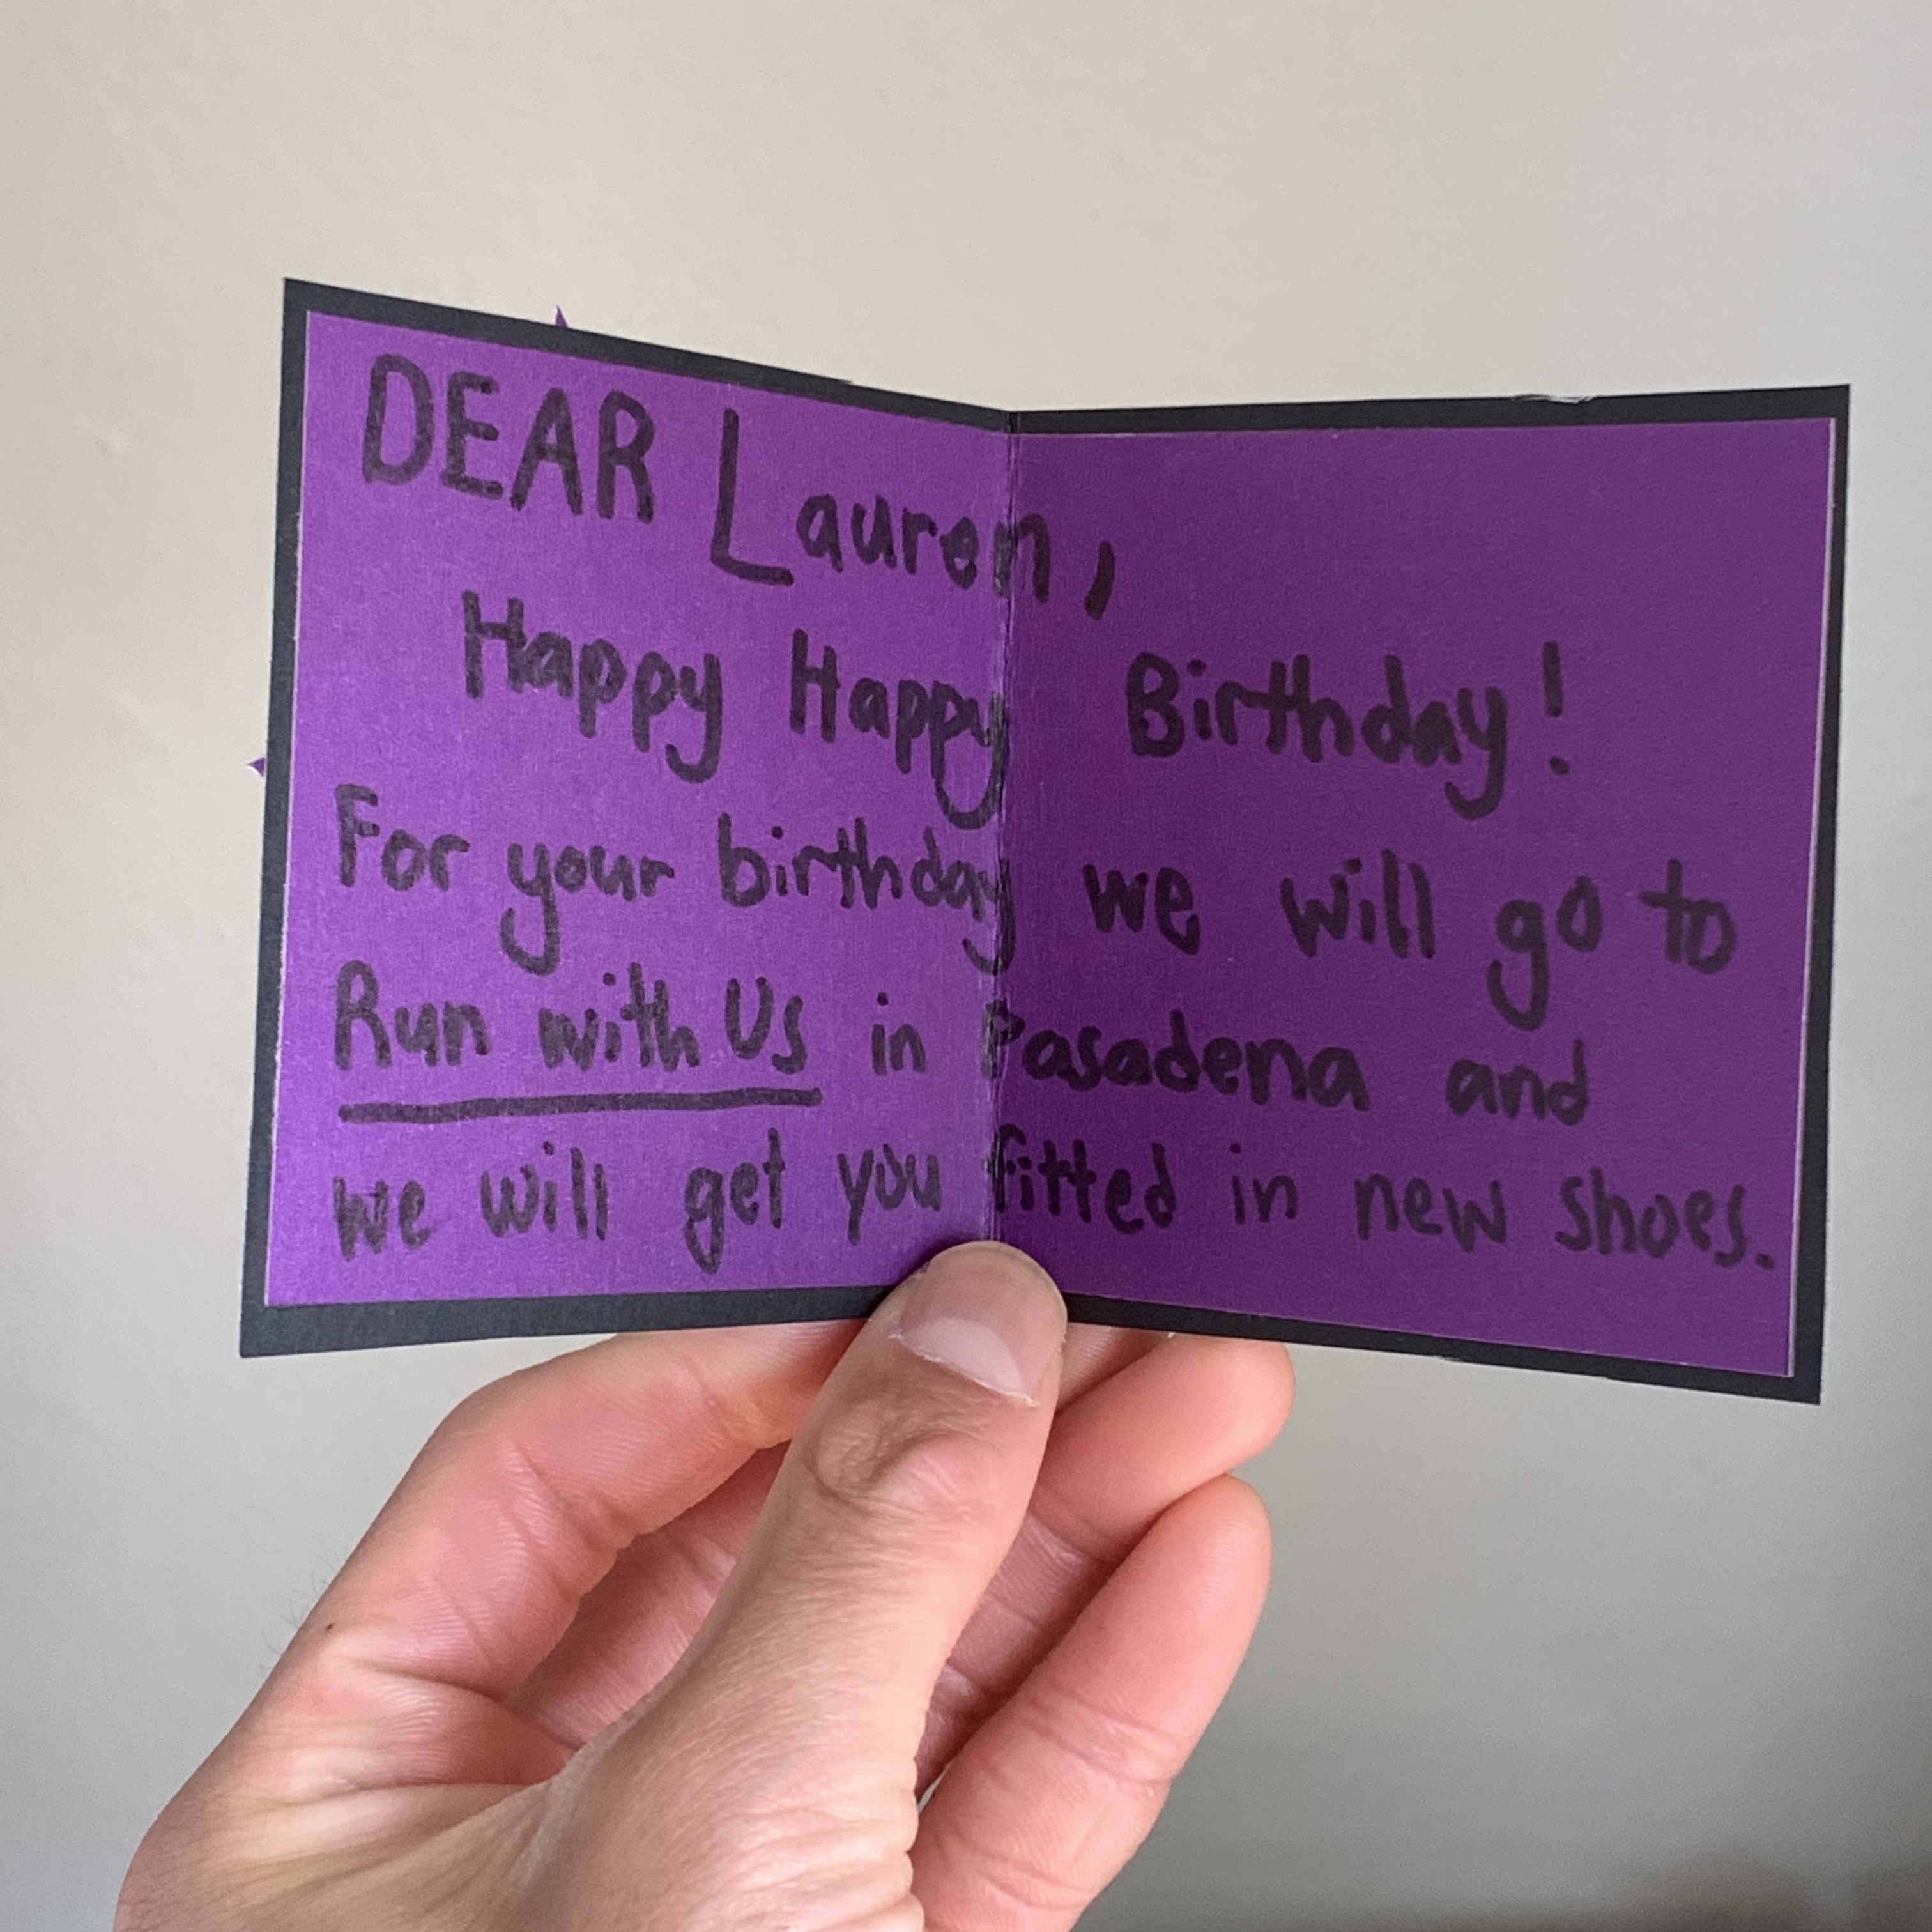 DEAR Lauren,
Happy Happy Birthday!
For your birthday we will go to
Run with Us in Pasadena and
we will get you fitted in new shoes.